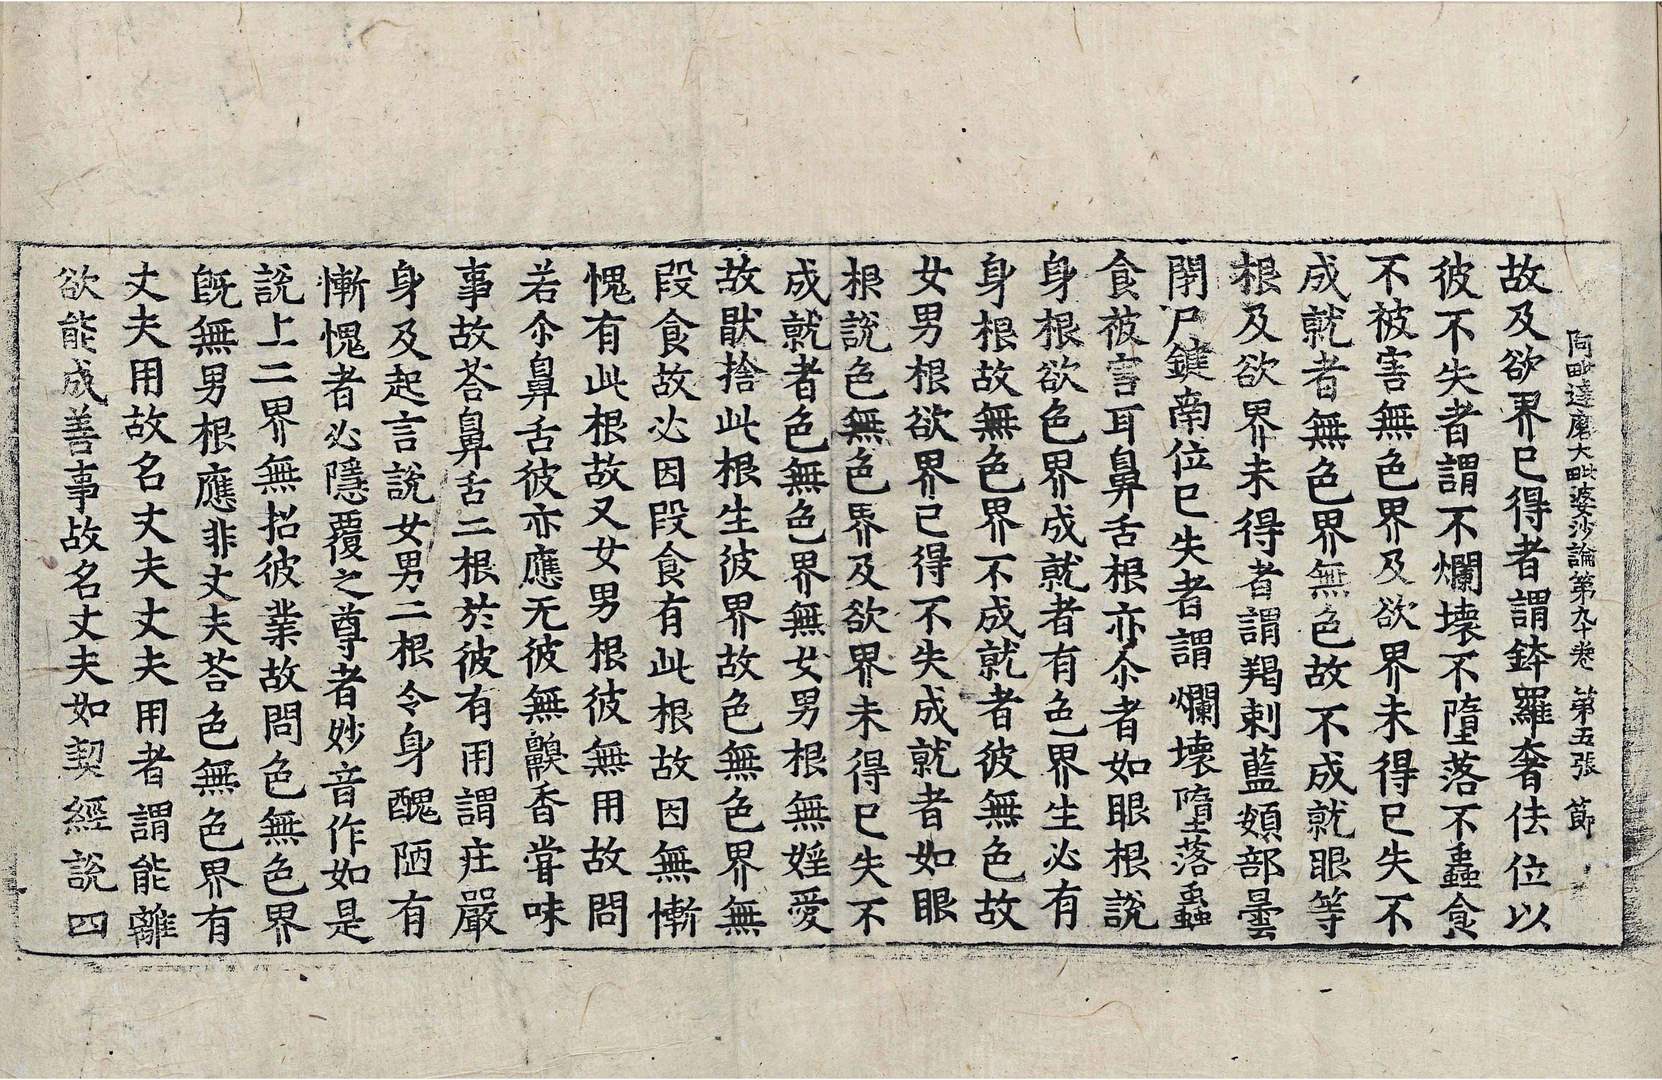 阿毗達磨大毗婆沙論第九十卷 第五張 節
故及欲界已得者謂鉢羅奢佉位以
彼不失者謂不爛壞不墮落不蟲食
不被害無色界及欲界未得已失不
成就者無色界無色故不成就眼等
根及欲界未得者謂羯剌藍頞部曇
閉尸鍵南位已失者謂爛壞墮落蟲
食被害耳鼻舌根亦尒者如眼根說
身根欲色界成就者有色界生必有
身根故無色界不成就者彼無色故
女男根欲界已得不失成就者如眼
根說色無色界及欲界未得已失不
成就者色無色界無女男根無婬愛
故猒捨此根生彼界故色無色界無
段食故必因段食有此根故因無慚
愧有此根故又女男根彼無用故問
若尒鼻舌彼亦應无彼無齅香甞味
事故荅鼻舌二根於彼有用謂庄嚴
身及起言說女男二根令身醜陋有
慚愧者必隱覆之尊者妙音作如是
說上二界無招彼業故問色無色界
旣無男根應非丈夫荅色無色界有
丈夫用故名丈夫丈夫用者謂能離
欲能成善事故名丈夫如契經說四